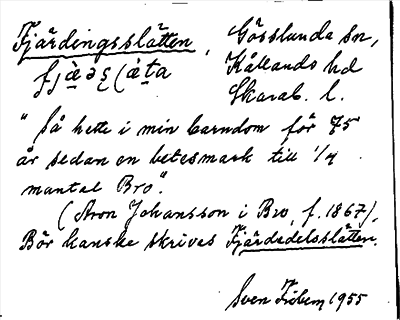 Fjärdingsslätten, Gösslunda sn,
Kållands hd
Skarab. l.
"Så hette i min barndom för 75
år sedan en betesmark till 1/4
mantal Bro".
(Aron Johansson i Bro, f. 1867),
Bör kanske skrivas Fjärdedelsslätten.
Sven 1955